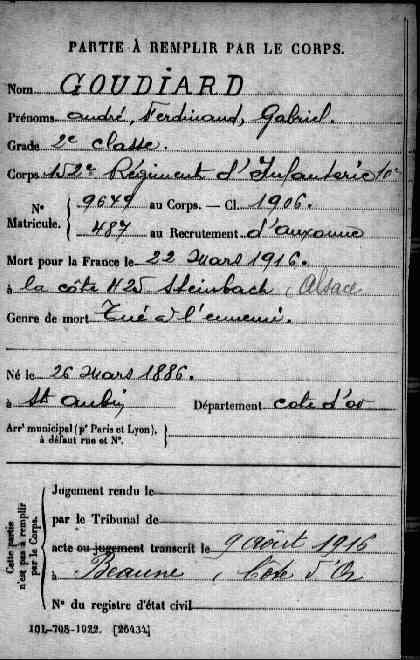 PARTIE À REMPLIR PAR LE CORPS.
Nom GOUDIARD
Prénoms andré, Ferdinand, Gabriel.
Grade 2e classe.
Corps 152e Régiment d'Infanterie
N° Matricule. 9679 au Corps. — Cl. 1906.
487 au Recrutement d'auxonne
Mort pour la France le 22 Mars 1916.
à la côte 425 Steinbach, Alsace
Genre de mort Tué à l'ennemi.
Né le 26 Mars 1886.
à St aubin Département cote d'or
Arrt municipal (pr Paris et Lyon), à défaut rue et N°.
Cette partie n'est pas à remplir par le Corps.
Jugement rendu le
par le Tribunal de
acte ou jugement transcrit le 9 août 1916
à Beaune, Côte d'Or
N° du registre d'état civil
101-708-1922. [26434]